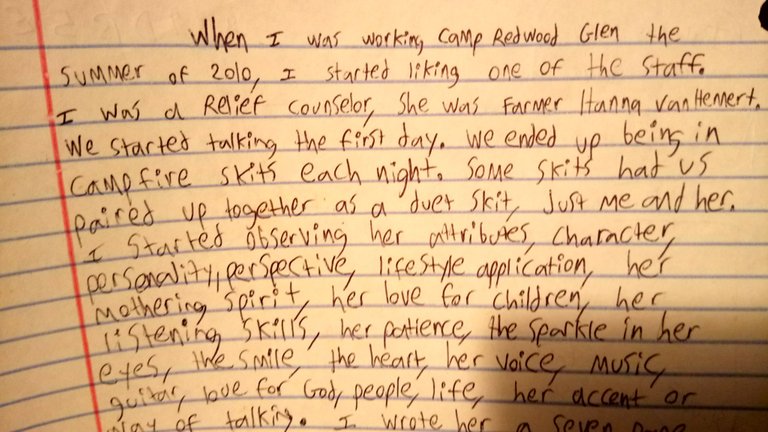 When I was working Camp Redwood Glen the
summer of 2010, I started liking one of the staff.
I was a Relief counselor, she was Farmer Hanna VanHemert.
We started talking the first day. We ended up being in
campfire skits each night. Some skits had us
paired up together as a duet skit, just me and her.
I started observing her attributes, character,
personality, perspective, lifestyle application, her
mothering spirit, her love for children, her
listening skills, her patience, the sparkle in her
eyes, the smile, the heart, her voice, music,
guitar, love for God, people, life, her accent or
way of talking. I wrote her a seven page